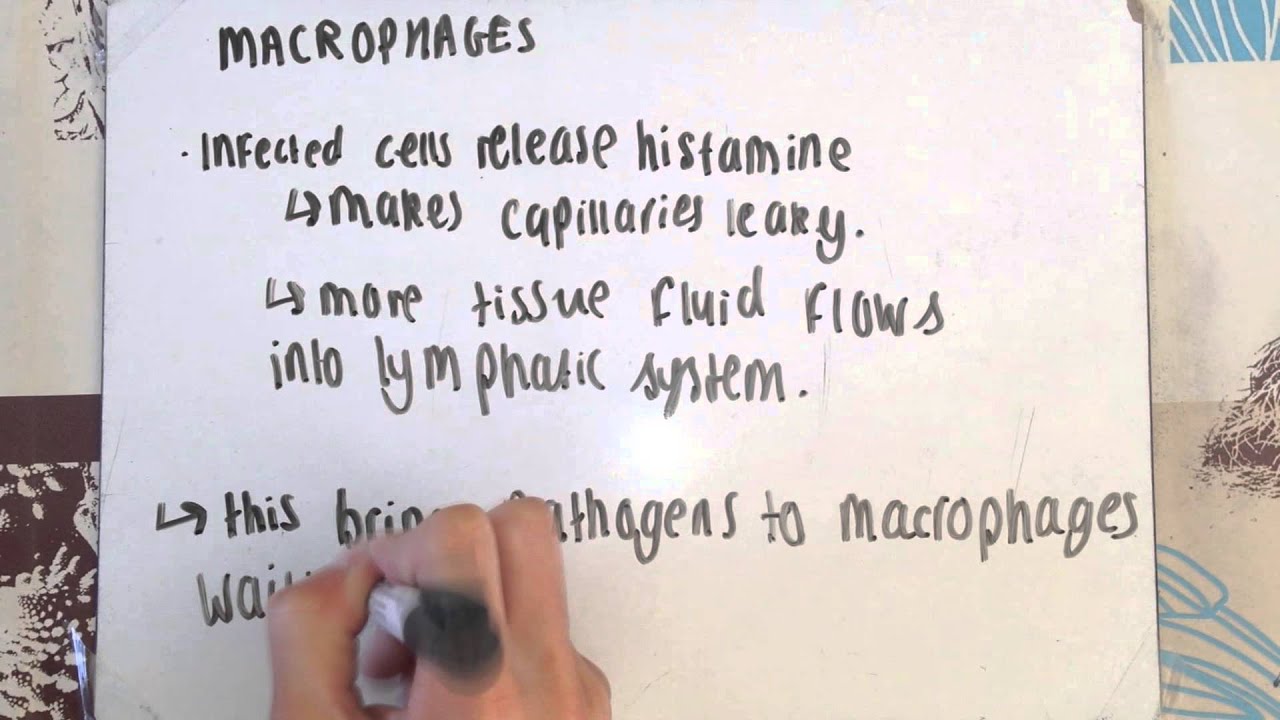 MACROPHAGES
· Infected cells release histamine
↳ makes capillaries leaky.
↳ more tissue fluid flows
into lymphatic system.
↳ this pathogens to macrophages